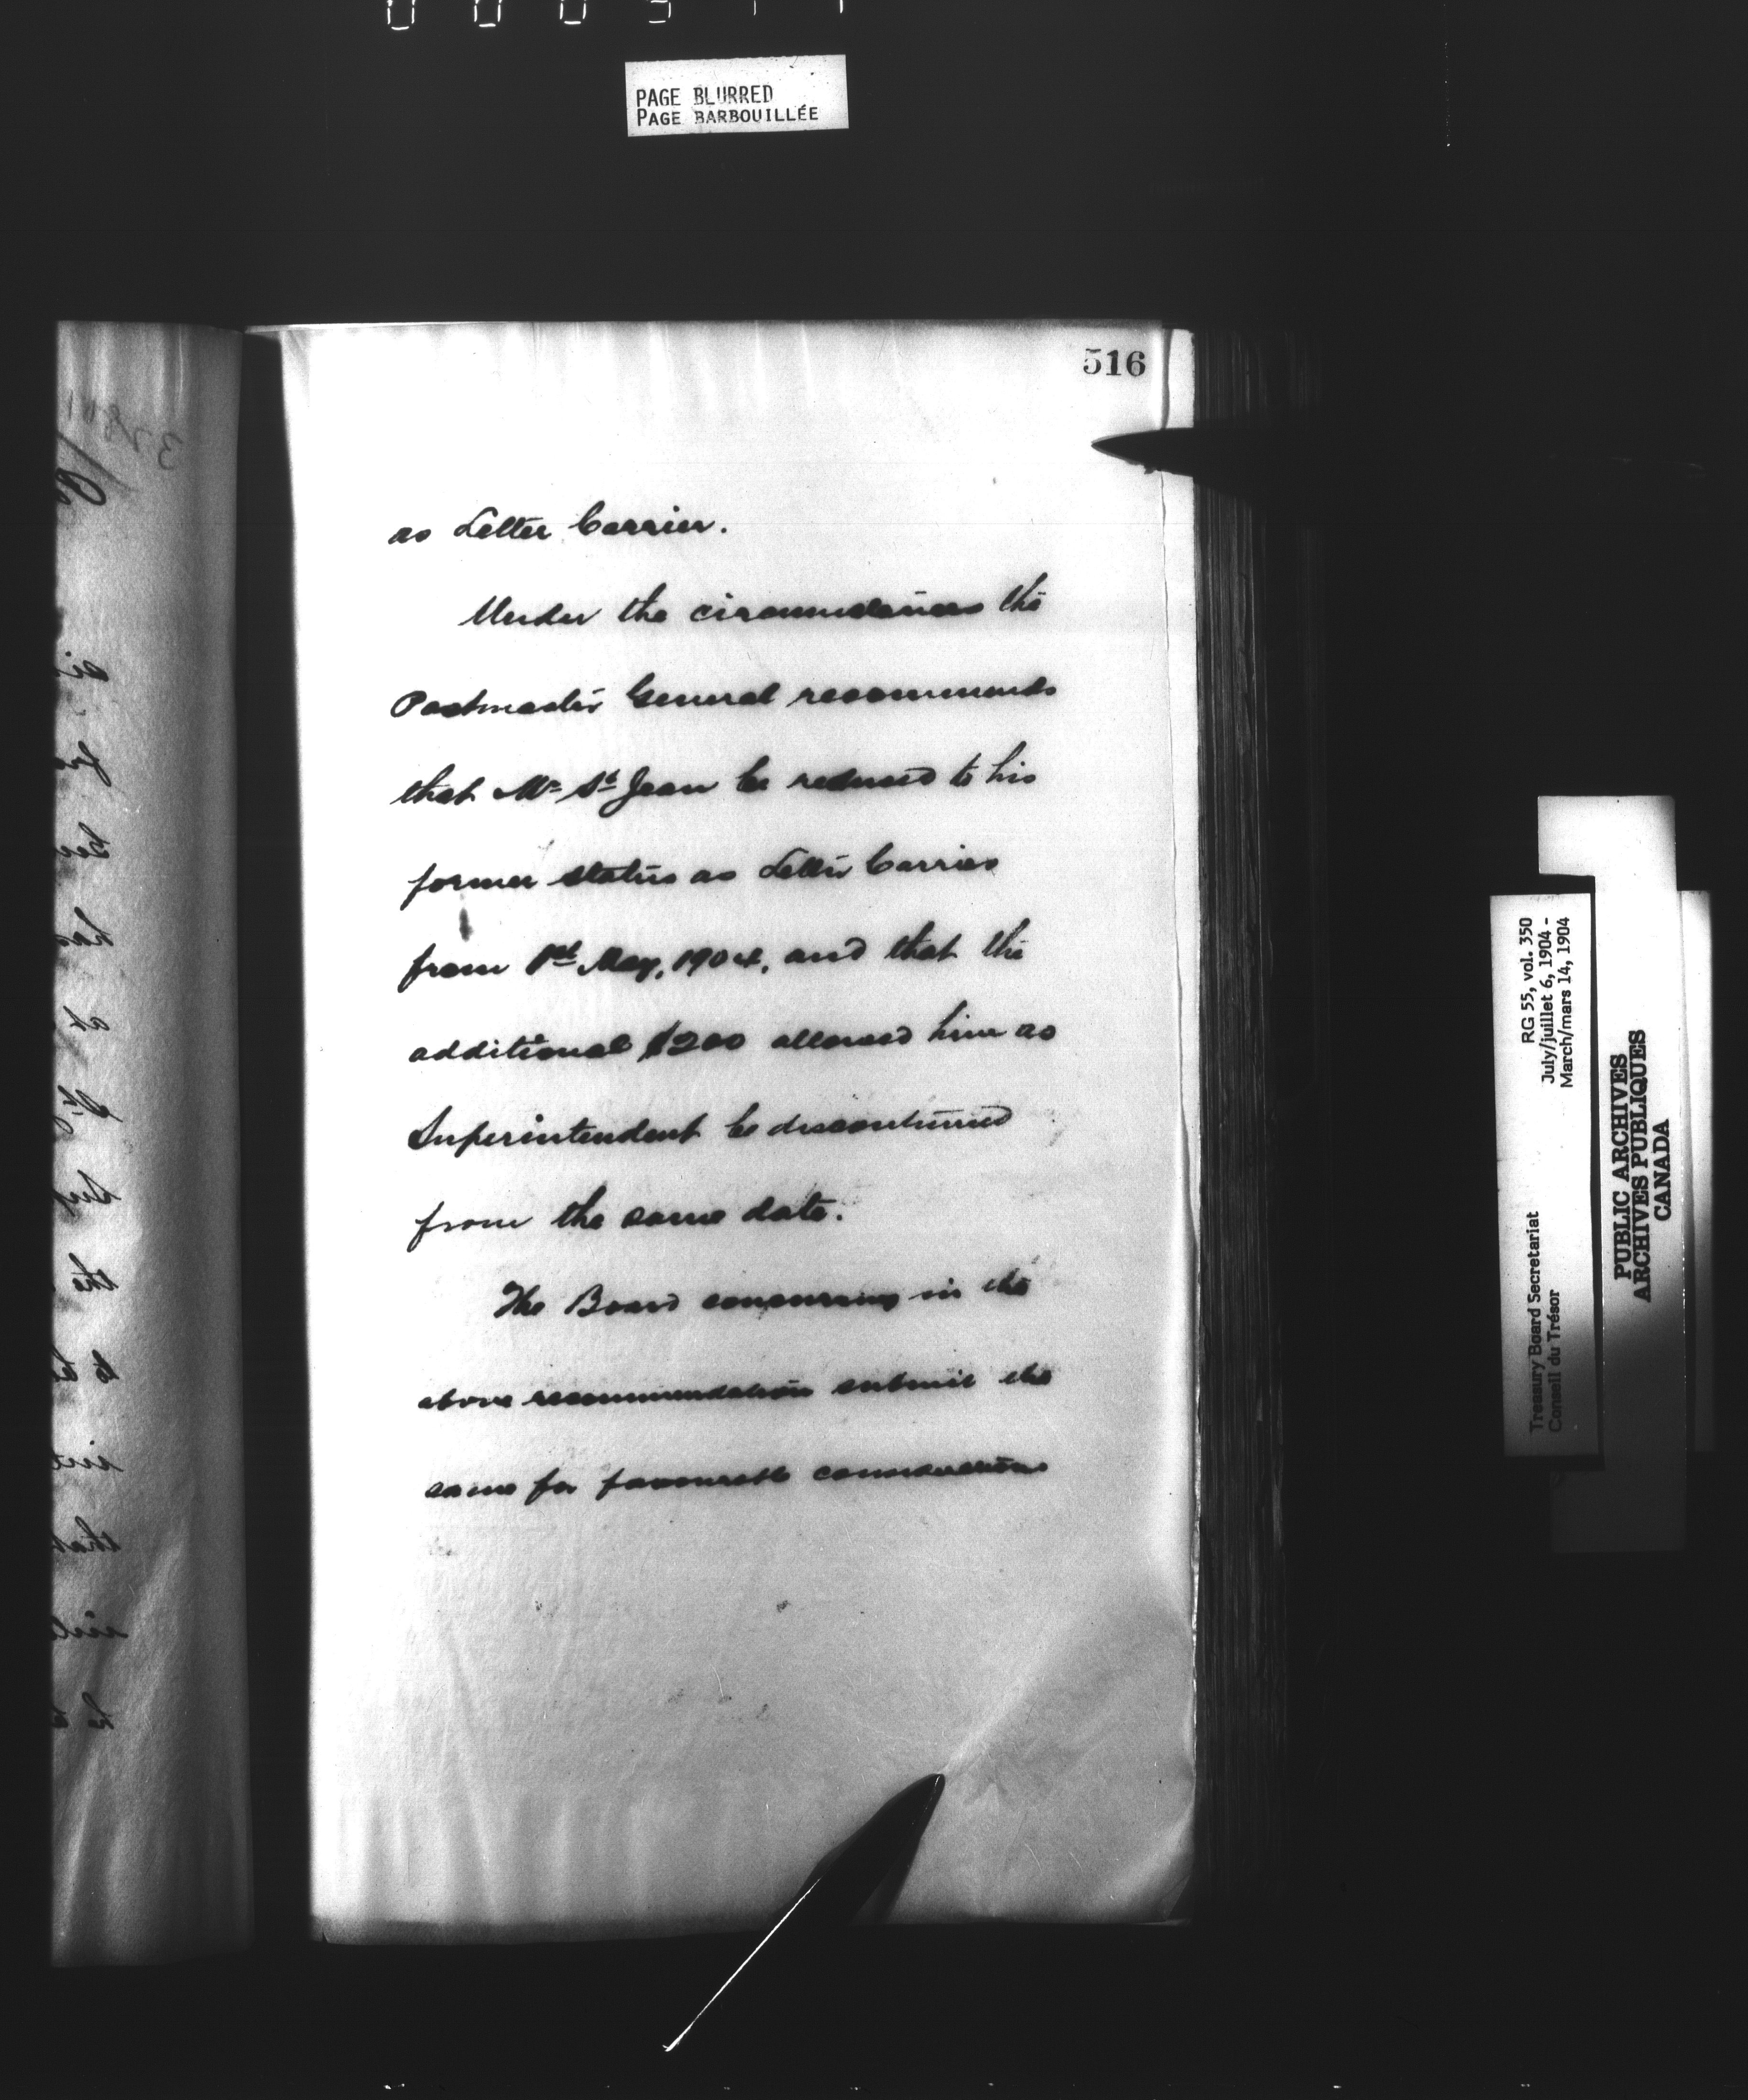 PAGE BLURRED
PAGE BARBOUILLÉE
516
as Letter Carrier.
Under the circumstances the
Postmaster General recommends
that Mr St Jean be reduced to his
former status as Letter Carrier
from 1st May, 1904, and that the
additional $200 allowed him as
Superintendent be discontinued
from the same date.
The Board concurring in the
above recommendation submit the
same for favourable consideration
RG 55, vol. 350
July/juillet 6, 1904 -
March/mars 14, 1904
Treasury Board Secretariat
Conseil du Trésor
PUBLIC ARCHIVES
ARCHIVES PUBLIQUES
CANADA